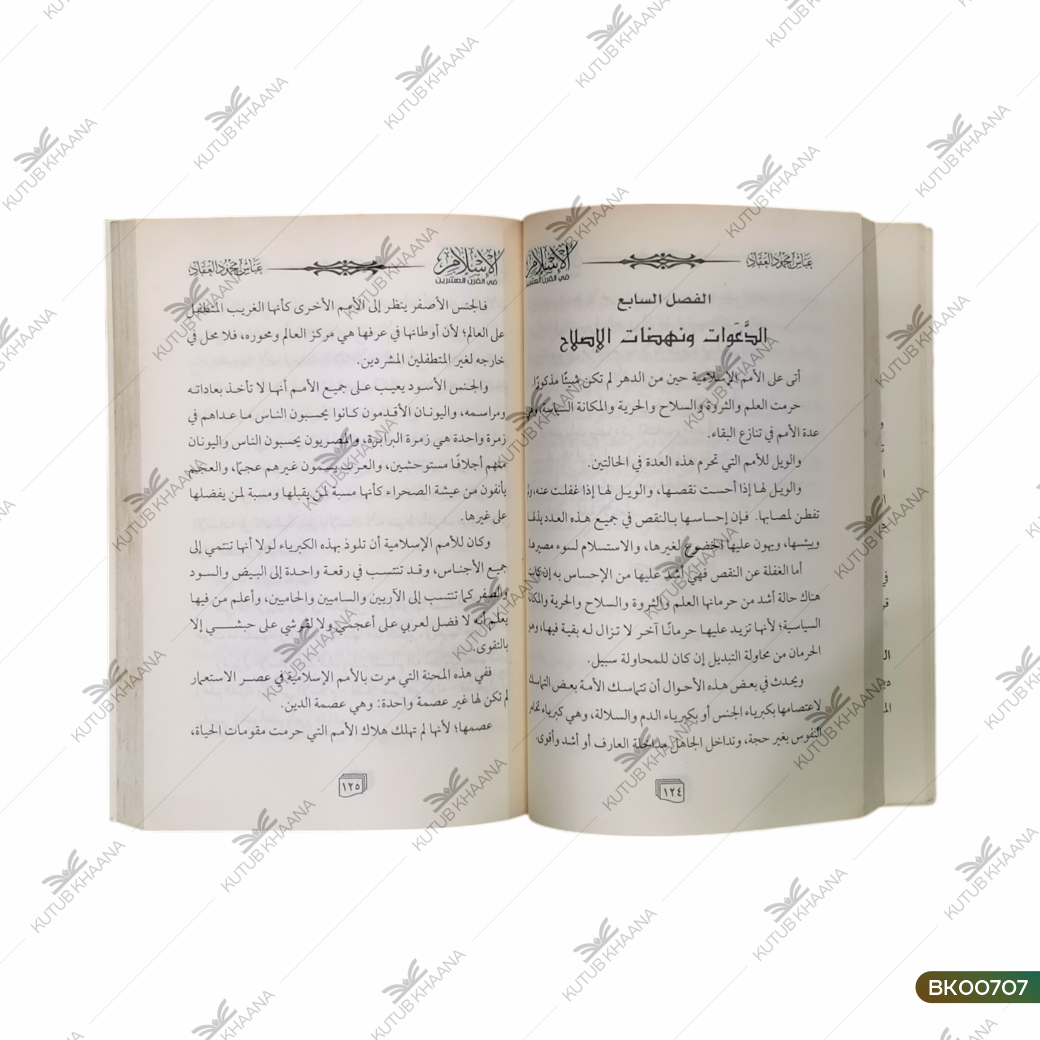 عباس محمود العقاد
الإسلام
في القرن العشرين
الفصل السابع
الدَّعَوات ونهضات الإصلاح
أتى على الأمم الإسلامية حين من الدهر لم تكن شيئًا مذكورًا.
حرمت العلم والثروة والسلاح والحرية والمكانة السياسية، وهي
عدة الأمم في تنازع البقاء.
والويل للأمم التي تحرم هذه العدة في الحالتين.
والويل لها إذا أحست نقصها، والويل لها إذا غفلت عنه، ولم
تفطن لمصابها. فإن إحساسها بالنقص في جميع هذه العدد يذلها
وييئسها، ويهون عليها الخضوع لغيرها، والاستسلام لسوء مصيرها
أما الغفلة عن النقص فهي أشد عليها من الإحساس به إن كانت
هناك حالة أشد من حرمانها العلم والثروة والسلاح والحرية والمكانة
السياسية؛ لأنها تزيد عليها حرمانًا آخر لا تزال له بقية فيها، وهو
الحرمان من محاولة التبديل إن كان للمحاولة سبيل.
ويحدث في بعض هذه الأحوال أن تتماسك الأمة بعض التماسك
لاعتصامها بكبرياء الجنس أو بكبرياء الدم والسلالة، وهي كبرياء تخامر
النفوس بغير حجة، وتداخل الجاهل مداخلة العارف أو أشد وأقوى.
١٢٤
الإسلام
في القرن العشرين
عباس محمود العقاد
فالجنس الأصفر ينظر إلى الأمم الأخرى كأنها الغريب المتطفل
على العالم؛ لأن أوطانها في عرفها هي مركز العالم ومحوره، فلا محل في
خارجه لغير المتطفلين المشردين.
والجنس الأسود يعيب على جميع الأمم أنها لا تأخذ بعاداته
ومراسمه، واليونان الأقدمون كانوا يحسبون الناس ما عداهم في
زمرة واحدة هي زمرة البرابرة، والمصريون يحسبون الناس واليونان
منهم أجلافًا مستوحشين، والعرب يسمون غيرهم عجمًا، والعجم
يأنفون من عيشة الصحراء كأنها مسبة لمن يقبلها ومسبة لمن يفضلها
على غيرها.
وكان للأمم الإسلامية أن تلوذ بهذه الكبرياء لولا أنها تنتمي إلى
جميع الأجناس، وقد تنتسب في رقعة واحدة إلى البيض والسود
والصفر كما تنتسب إلى الآريين والساميين والحاميين، وأعلم من فيها
يعلم أنه لا فضل لعربي على أعجمي ولا لقرشي على حبشي إلا
بالتقوى.
ففي هذه المحنة التي مرت بالأمم الإسلامية في عصر الاستعمار
لم تكن لها غير عصمة واحدة: وهي عصمة الدين.
عصمها؛ لأنها لم تهلك هلاك الأمم التي حرمت مقومات الحياة،
١٢٥
KUTUB KHAANA
BK00707